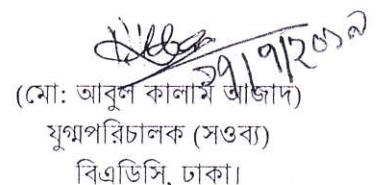 ২৭/৭/২০১৭
(মো: আবুল কালাম আজাদ)
যুগ্মপরিচালক (সওব্য)
বিএডিসি, ঢাকা।